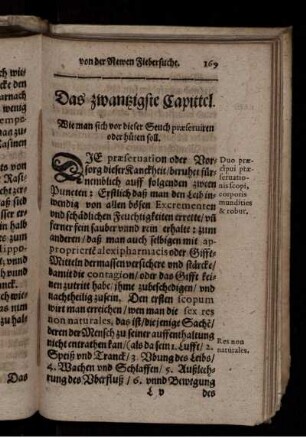 von der Newen Fiebersucht. 169
Das zwantzigste Capittel.
Wie man sich vor dieser Seuch præserviren
oder hüten soll.
DIE præservation oder Vor-
sorg dieser Kranckheit / beruhet für-
nemblich auff folgenden zween
Puncten: Erstlich daß man den Leib in-
wendig von allen bösen Excrementen
und schädlichen Feuchtigkeiten errette / uñ
ferner fein sauber unnd rein erhalte: zum
anderen / daß man auch selbigen mit ap-
propriertē alexipharmacis oder Gifft-
Mitteln dermassen versichere und stärcke /
damit die contagion / oder das Gifft kei-
nen zutritt habe / ihme zubeschedigen / und
nachtheilig zusein. Den ersten scopum
wirt man erreichen / wen man die sex res
non naturales, das ist / diejenige Sachē /
deren der Mensch zu seiner auffenthaltung
nicht entrathen kan / (als da sein 1. Lufft / 2.
Speiß und Tranck / 3. Vbung des Leibs /
4. Wachen und Schlaffen / 5. Außlech-
rung des Vberfluß / 6. unnd Bewegung
L v des
Duo præ-
cipui præ-
servatio-
nis scopi,
corporis
mundities
& robur.
Res non
naturales.